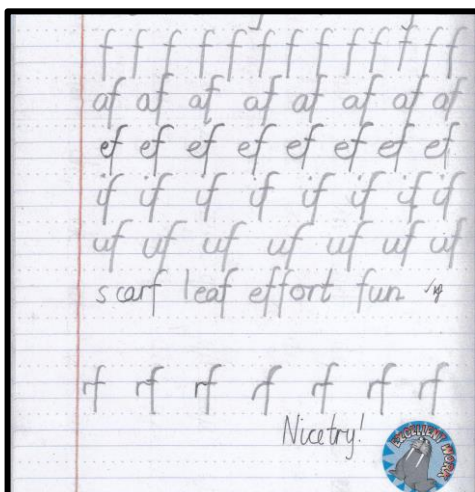 f f f f f f f f f f f f
af af af af af af af af
ef ef ef ef ef ef ef ef
if if if if if if if if
uf uf uf uf uf uf uf
scarf leaf effort fun
rf rf rf rf rf rf rf
Nice try!
EXCELLENT WORK